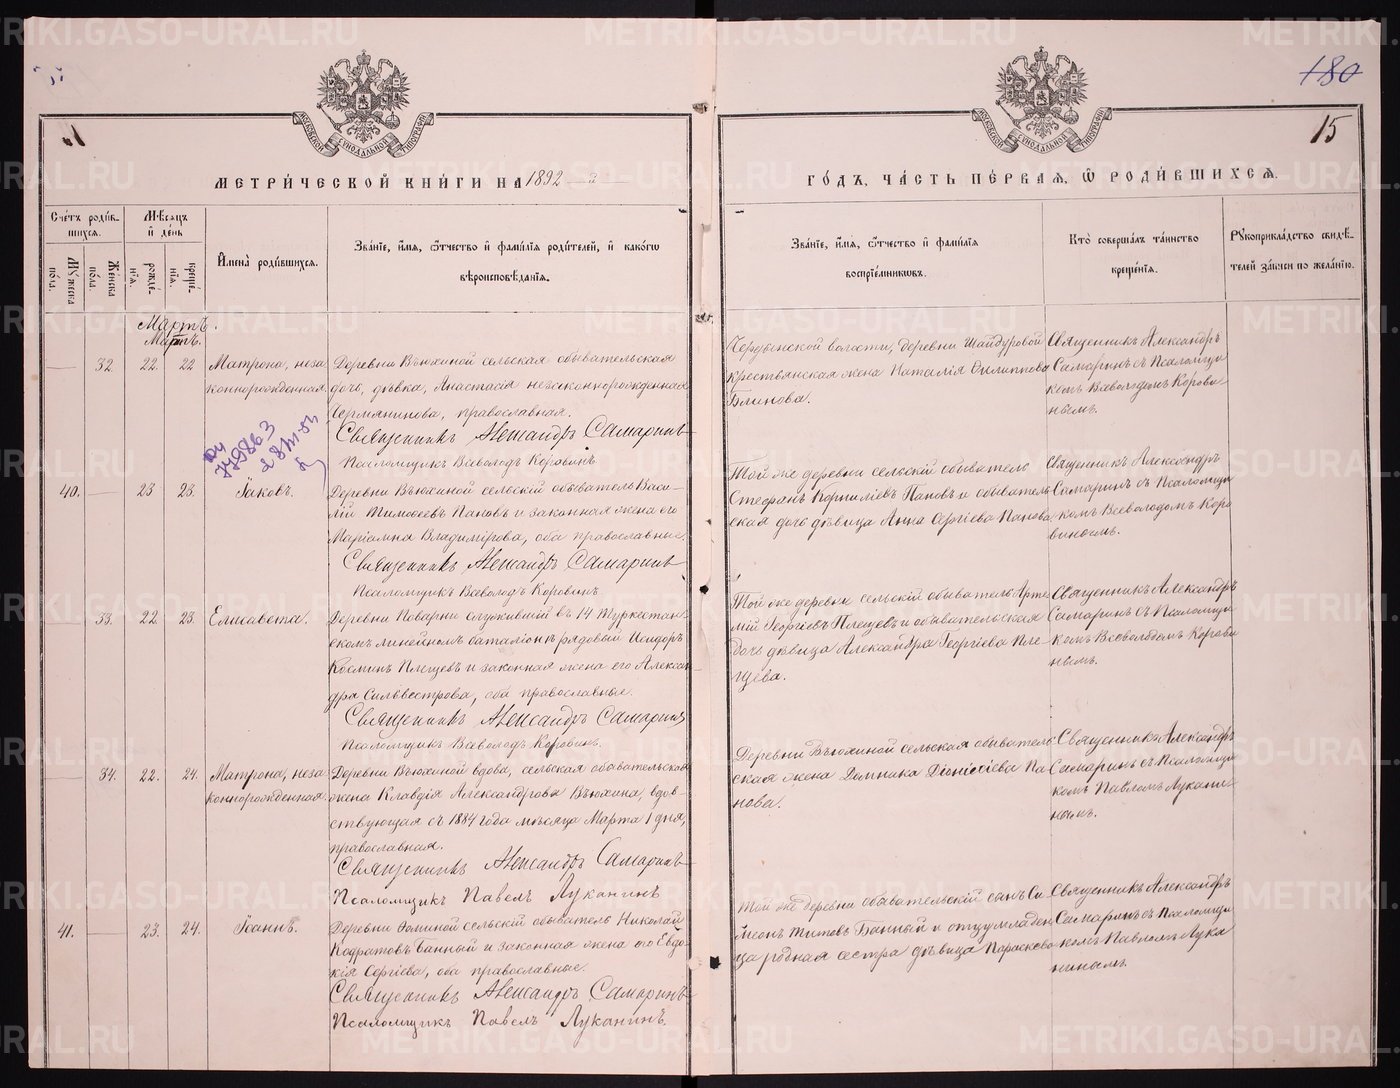 180
15
МОСКОВСКОЙ СѴНОДАЛЬНОЙ ТИПОГРАФІИ
МОСКОВСКОЙ СѴНОДАЛЬНОЙ ТИПОГРАФІИ
МЕТРИ́ЧЕСКОЙ КНИ́ГИ НА 1892
ГО́ДЪ, ЧА́СТЬ ПЕ́РВАЯ, Ѡ РОДИ́ВШИХСЯ.
Сче́тъ роди́вшихся.
Му́жеска по́ла.
Же́нска по́ла.
Мѣ́сяцъ и҆ де́нь
рожде́нїя.
креще́нїя.
И҆мена̀ роди́вшихся.
Зва́нїе, и҆́мя, ѻ҆́тчество и҆ фами́лїя роди́телей, и҆ како́гѡ
вѣроисповѣ́данїя.
Зва́нїе, и҆́мя, ѻ҆́тчество и҆ фами́лїя
воспрїе́мниковъ.
Кто̀ соверша́лъ та́инство
креще́нїя.
Рукоприкла́дство свидѣ́-
телей за́писи по жела́нїю.
Мартъ.
Мартъ.
32 22. 22 Матрона, неза
коннорожденная.
Деревни Вьюхиной сельская обывательская
дочь, дѣвка, Анастасія незаконнорожденная
Сермянинова, православная.
Священникъ Александръ Самаринъ
Псаломщикъ Всеволодъ Коровинъ.
Черданской волости, деревни Шайдуровой
крестьянская жена Наталія Филиппова
Блинова.
Священникъ Александръ
Самаринъ съ Псаломщи
комъ Всеволодомъ Корови
нымъ.
40. 23 23. Іаковъ.
Деревни Вьюхиной сельскій обыватель Васи-
лій Тимоѳеевъ Пановъ и законная жена его
Маріамна Владимірова, оба православные.
Священникъ Александръ Самаринъ
Псаломщикъ Всеволодъ Коровинъ.
Той же деревни сельскій обыватель
Стефанъ Корниліевъ Пановъ и обыватель
ская дочь дѣвица Анна Сергіева Панова.
Священникъ Александръ
Самаринъ съ Псаломщи
комъ Всеволодомъ Коро
винымъ.
33. 22. 23. Елисавета.
Деревни Поварни служившій въ 14 Туркестан-
скомъ линейномъ баталіонѣ рядовый Исидоръ
Косминъ Плещевъ и законная жена его Алексан
дра Силввестрова, оба православные.
Священникъ Александръ Самаринъ
Псаломщикъ Всеволодъ Коровинъ.
Той же деревни сельскій обыватель Арте
мій Георгіевъ Плещевъ и обывательская
дочь дѣвица Александра Георгіева Пле-
щева.
Священникъ Александръ
Самаринъ съ Псаломщи
комъ Всеволодомъ Корови
нымъ.
34. 22. 24. Матрона, неза
коннорожденная.
Деревни Вьюхиной вдова, сельская обывательская
жена Клавдія Александрова Вьюхина, вдов-
ствующая съ 1884 года мѣсяца Марта 1 дня,
православная.
Священникъ Александръ Самаринъ
Псаломщикъ Павелъ Луканинъ
Деревни Вьюхиной сельская обыватель
ская жена Домника Діонисіева Па
нова.
Священникъ Александръ
Самаринъ съ Псаломщи
комъ Павломъ Лукани
нымъ.
41. 23. 24. Іоаннъ.
Деревни Ѳоминой сельскій обыватель Николай
Кодратовъ Банный и законная жена его Евдо
кія Сергіева, оба православные.
Священникъ Александръ Самаринъ
Псаломщикъ Павелъ Луканинъ.
Той же деревни обывательскій сынъ Си
меонъ Титовъ Банный и отцу младен
ца родная сестра дѣвица Параскева
Священникъ Александръ
Самаринъ съ Псаломщи
комъ Павломъ Лука
нинымъ.
METRIKI.GASO-URAL.RU